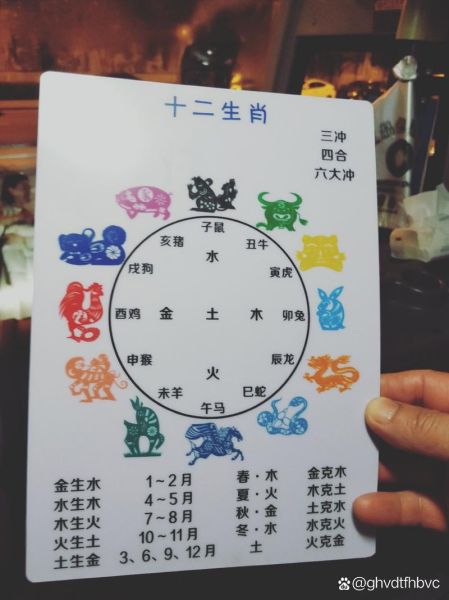 十二生肖
三冲
四合
六大冲
子鼠
亥猪
丑牛
水
戌狗
寅虎
酉鸡
金
土
木
卯兔
申猴
辰龙
火
未羊
巳蛇
午马
金生水 1~2月 春·木 金克木
水生木 4~5月 夏·火 木克土
木生火 7~8月 秋·金 土克水
火生土 10~11月 冬·水 水克火
土生金 3、6、9、12月 土 火克金
@ghvdtfhbvc